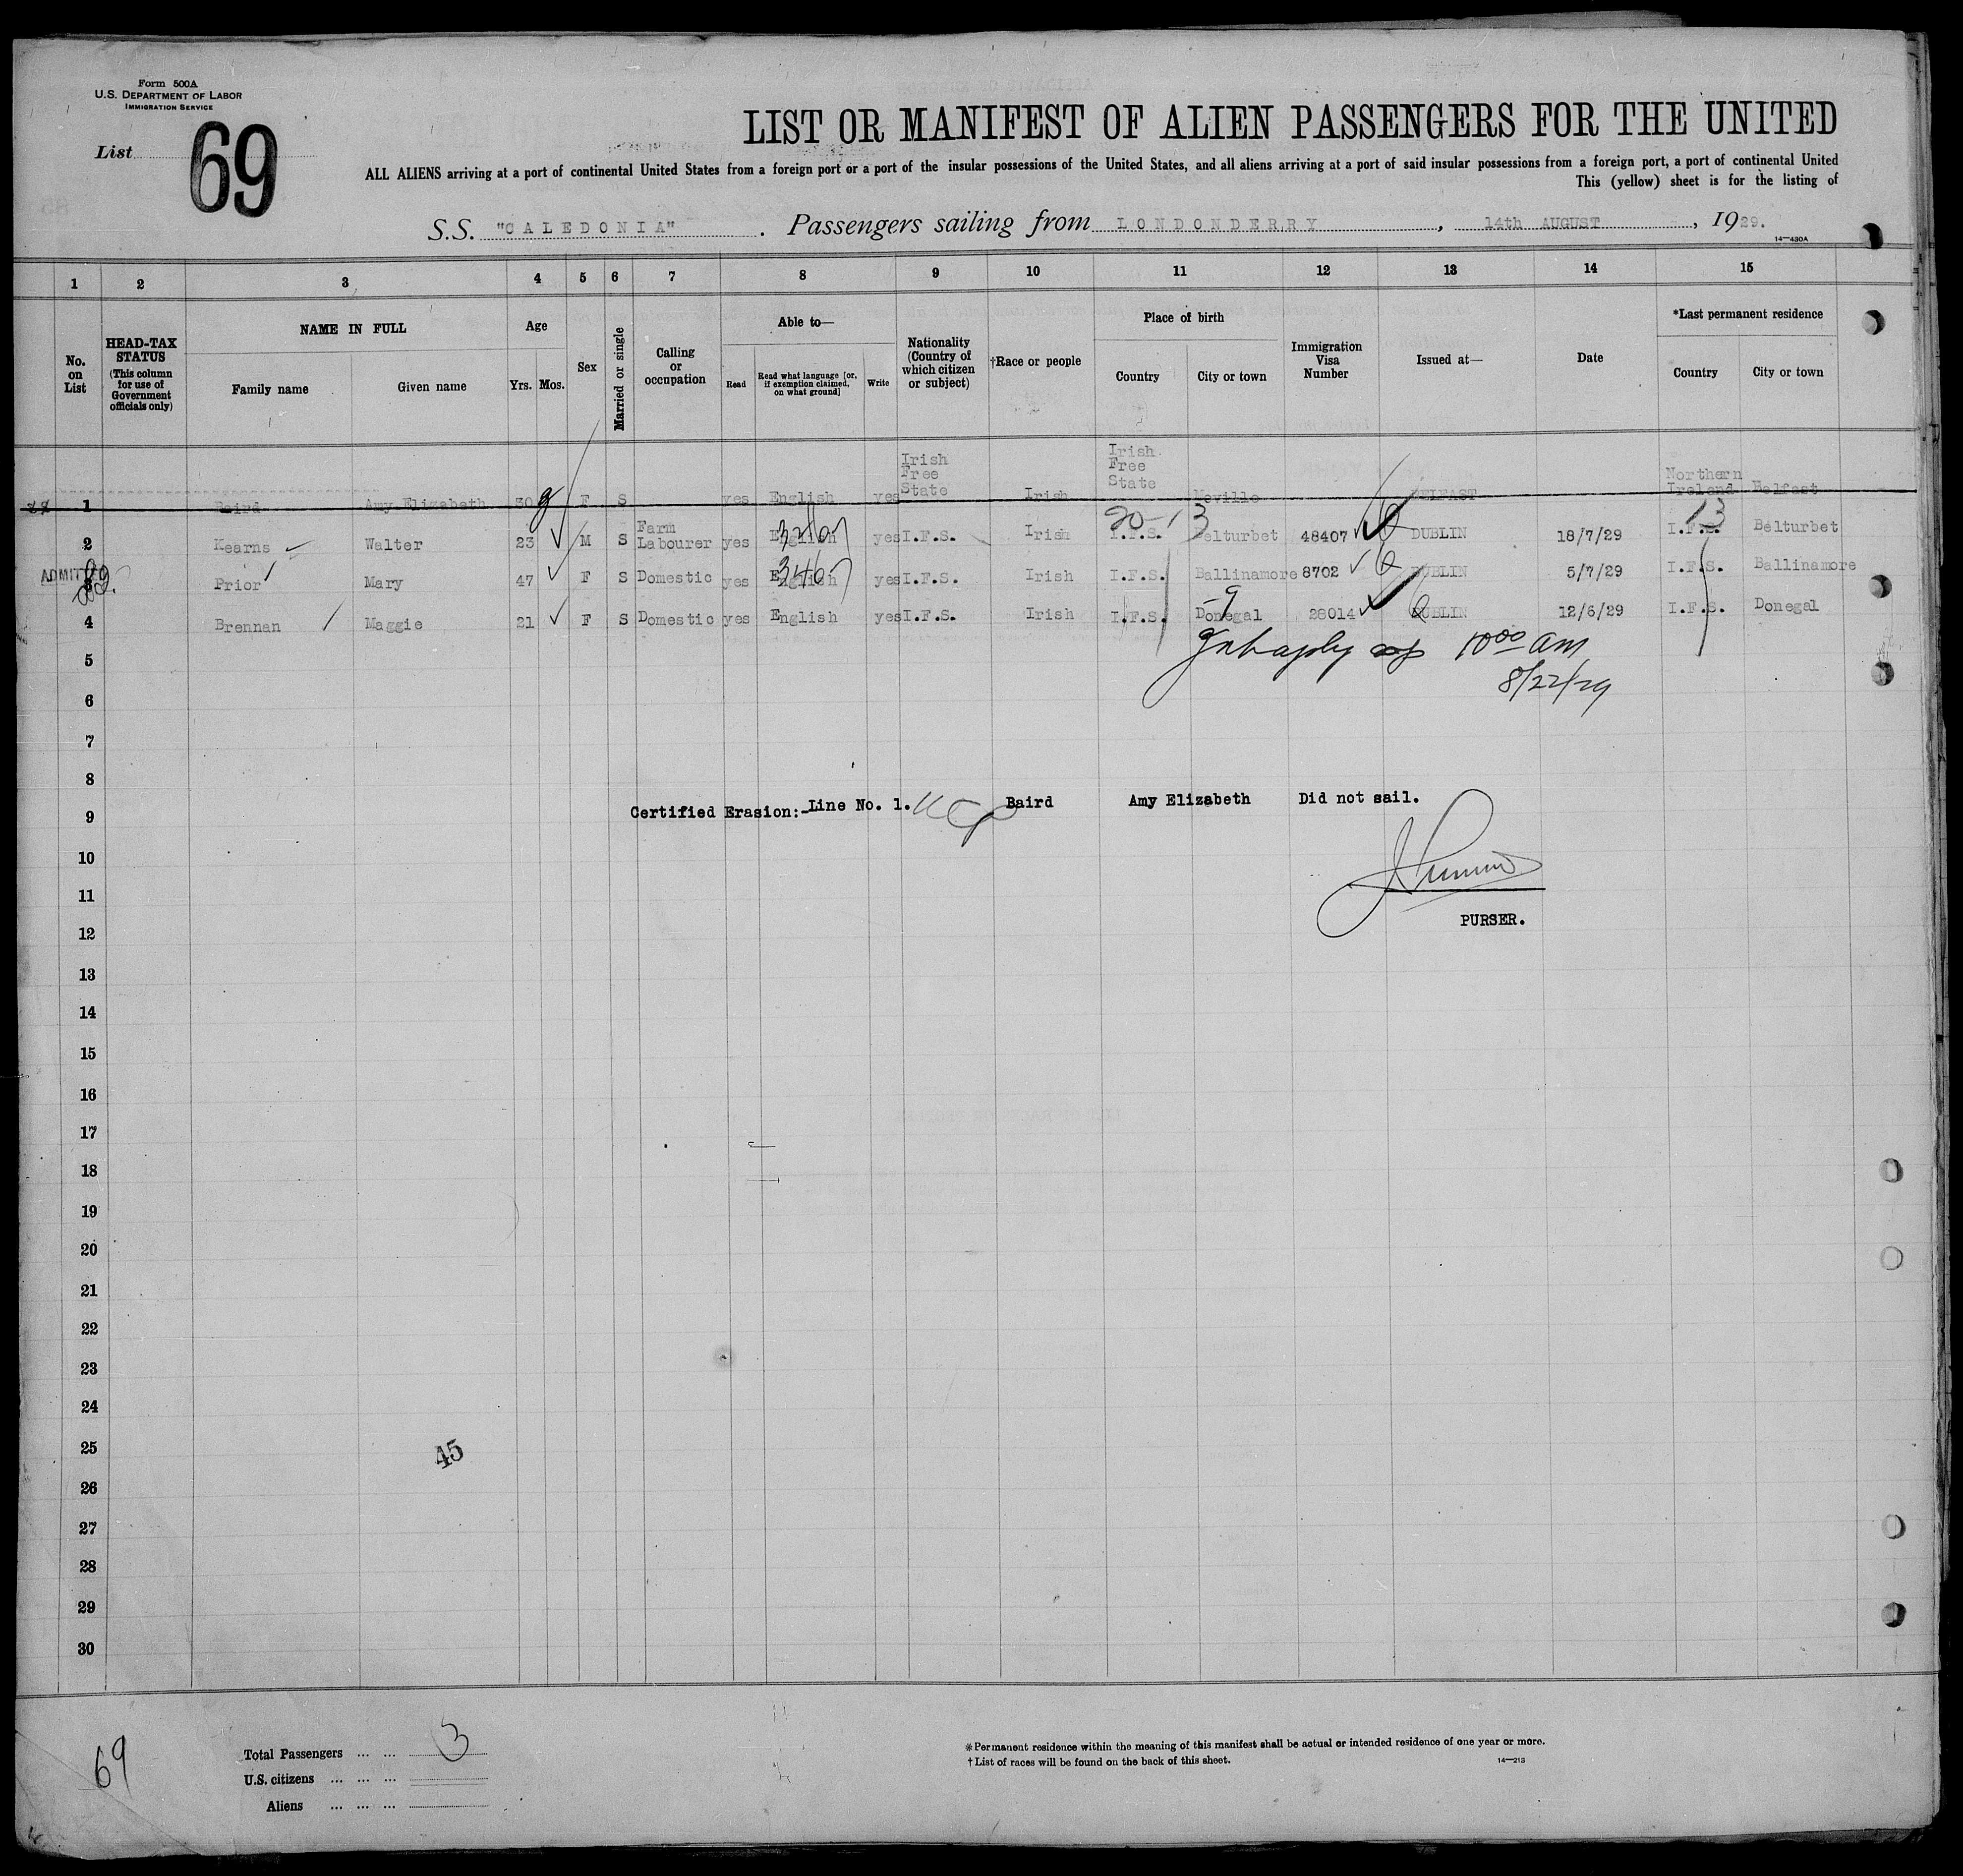 Form 500A
U.S. DEPARTMENT OF LABOR
IMMIGRATION SERVICE
List 69
LIST OR MANIFEST OF ALIEN PASSENGERS FOR THE UNITED
ALL ALIENS arriving at a port of continental United States from a foreign port or a port of the insular possessions of the United States, and all aliens arriving at a port of said insular possessions from a foreign port, a port of continental United
This (yellow) sheet is for the listing of
S.S. "CALEDONIA" . Passengers sailing from LONDONDERRY , 14th AUGUST , 1929.
14—430A
1 2 3 4 5 6 7 8 9 10 11 12 13 14 15
No. on List
HEAD-TAX STATUS (This column for use of Government officials only)
NAME IN FULL
Family name Given name
Age
Yrs. Mos.
Sex
Married or single
Calling or occupation
Able to—
Read
Read what language [or, if exemption claimed, on what ground]
Write
Nationality (Country of which citizen or subject)
†Race or people
Place of birth
Country City or town
Immigration Visa Number
Issued at—
Date
*Last permanent residence
Country City or town
1 Baird Amy Elizabeth 30 F S yes English yes Irish Free State Irish Irish Free State Moville BELFAST Northern Ireland Belfast
20-13 13
2 Kearns Walter 23 M S Farm Labourer yes English yes I.F.S. Irish I.F.S. Belturbet 48407 DUBLIN 18/7/29 I.F.S. Belturbet
ADMITTED
3 Prior Mary 47 F S Domestic yes English yes I.F.S. Irish I.F.S. Ballinamore 8702 DUBLIN 5/7/29 I.F.S. Ballinamore
-9
4 Brennan Maggie 21 F S Domestic yes English yes I.F.S. Irish I.F.S. Donegal 28014 DUBLIN 12/6/29 I.F.S. Donegal
10⁰⁰ am
8/22/29
5
6
7
8
9
Certified Erasion:- Line No. 1. Baird Amy Elizabeth Did not sail.
10
11
12
PURSER.
13
14
15
16
17
18
19
20
21
22
23
24
25
45
26
27
28
29
30
69
Total Passengers ... ... 3
U.S. citizens ... ... ...
Aliens ... ... ...
*Permanent residence within the meaning of this manifest shall be actual or intended residence of one year or more.
†List of races will be found on the back of this sheet.
14—213